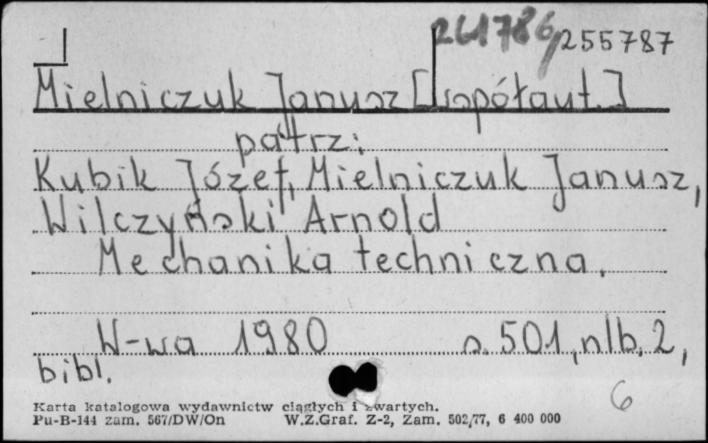 261786, 255787
Mielniczuk Janusz [współaut.]
patrz:
Kubik Józef, Mielniczuk Janusz,
Wilczyński Arnold
Mechanika techniczna.
W-wa 1980 s. 501, nlb. 2,
bibl.
6
Karta katalogowa wydawnictw ciągłych i zwartych.
Pu-B-144 zam. 567/DW/On W.Z.Graf. Z-2, Zam. 502/77, 6 400 000